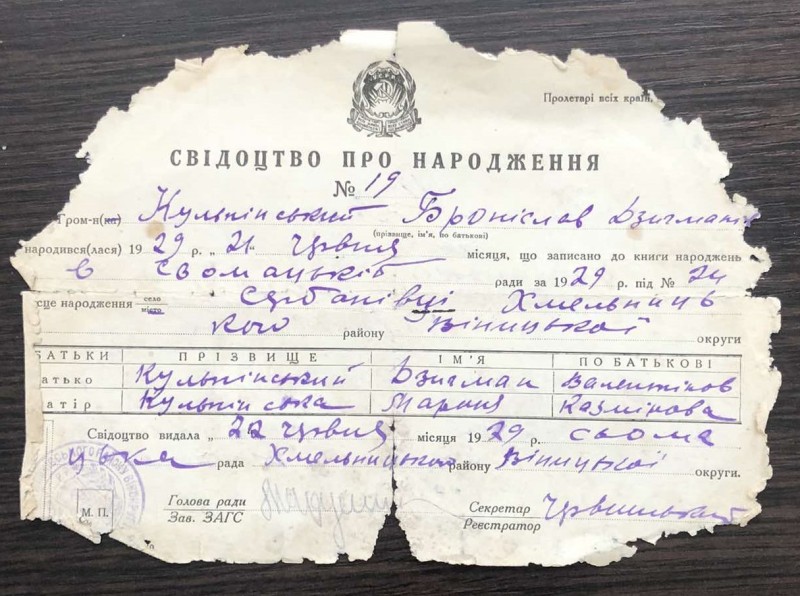 Пролетарі всіх країн,
СВІДОЦТВО ПРО НАРОДЖЕННЯ
№ 19
Гром-н(ка) Кульпінський Броніслав Дзигманів
(прізвище, ім'я, по батькові)
народився(лася) 19 29 р. „ 21 “ червня місяця, що записано до книги народжень
в Сьомацькій ради за 19 29 р. під № 24
сце народження село місто Сербанівці Хмельниць
кого району Вінницької округи
БАТЬКИ ПРІЗВИЩЕ ІМ'Я ПО БАТЬКОВІ
атько Кульпінський Дзигман Валентінов
атір Кульпінська Марія Казмірова
Свідоцтво видала „ 22 червня місяця 19 29 р. сьома
цька рада Хмельницького району Вінницької округи.
М. П. Голова ради Секретар
Зав. ЗАГС Реєстратор